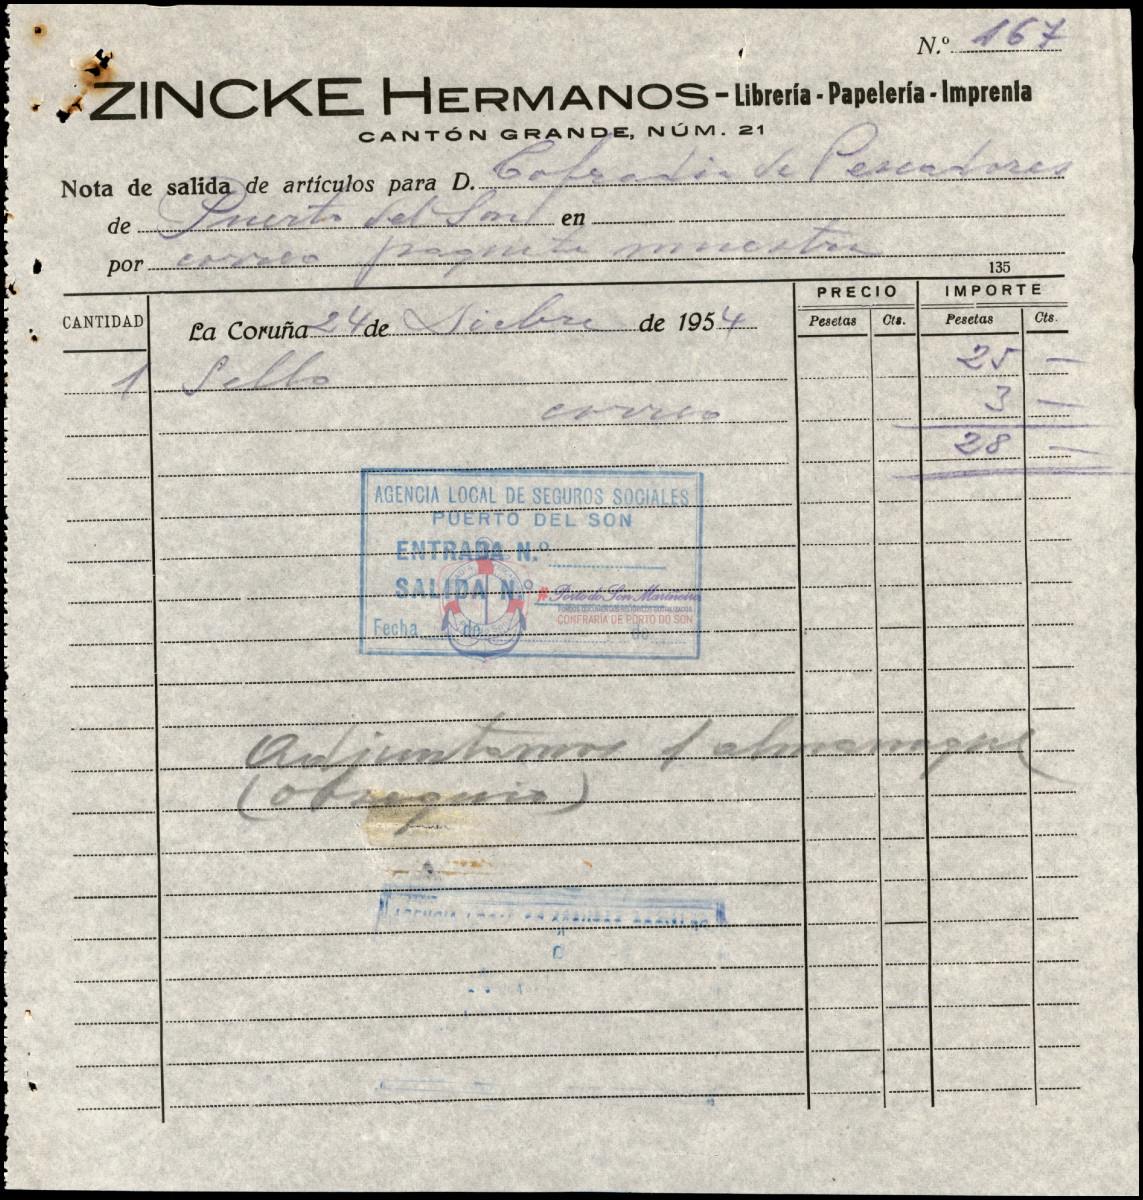 N.º 167
ZINCKE HERMANOS - Librería - Papelería - Imprenta
CANTÓN GRANDE, NÚM. 21
Nota de salida de artículos para D. Cofradia de Pescadores
de Puerto del Son en
por correo paquete muestra
135
CANTIDAD La Coruña 24 de Dicbre de 1954 PRECIO IMPORTE
Pesetas Cts. Pesetas Cts.
1 Sello 25 —
correo 3 —
28 —
AGENCIA LOCAL DE SEGUROS SOCIALES
PUERTO DEL SON
ENTRADA N.º
SALIDA N.º
#Porto do Son Marineiro
CONFRARÍA DE PORTO DO SON
Fecha de de
Adjuntamos 1 almanaque
(obsequio)